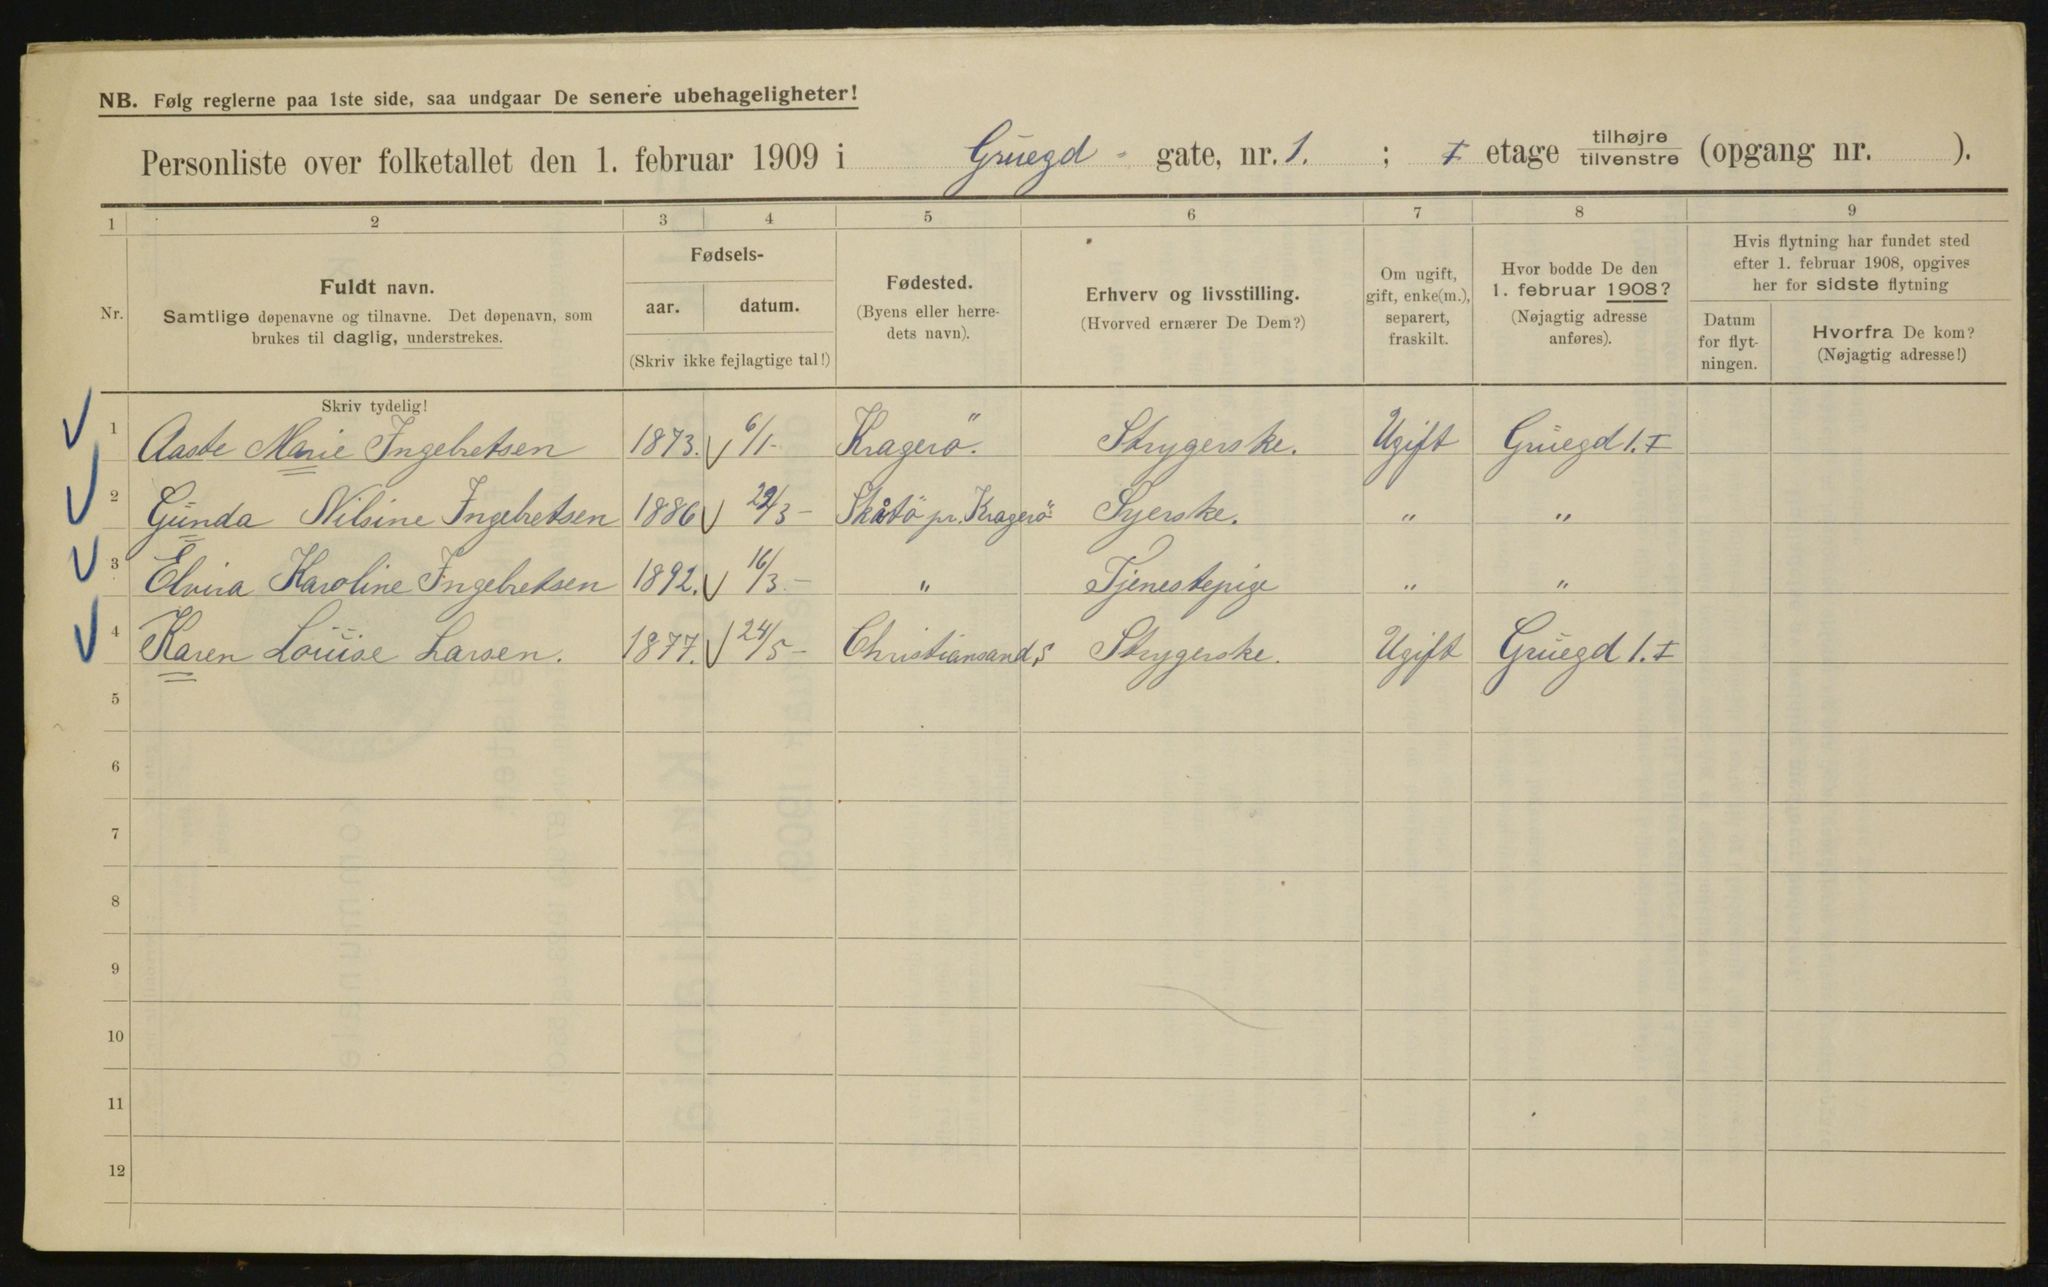 NB. Følg reglerne paa 1ste side, saa undgaar De senere ubehageligheter!
Personliste over folketallet den 1. februar 1909 i Gruegd - gate, nr. 1. ; I etage tilhøjre/tilvenstre (opgang nr. ).
1 2 3 4 5 6 7 8 9
Nr.
Fuldt navn.
Samtlige døpenavne og tilnavne. Det døpenavn, som
brukes til daglig, understrekes.
Skriv tydelig!
Fødsels-
aar. datum.
(Skriv ikke fejlagtige tal!)
Fødested.
(Byens eller herre-
dets navn).
Erhverv og livsstilling.
(Hvorved ernærer De Dem?)
Om ugift,
gift, enke(m.),
separert,
fraskilt.
Hvor bodde De den
1. februar 1908?
(Nøjagtig adresse
anføres).
Hvis flytning har fundet sted
efter 1. februar 1908, opgives
her for sidste flytning
Datum
for flyt-
ningen.
Hvorfra De kom?
(Nøjagtig adresse!)
1 Aaste Marie Ingebretsen 1873. 6/1- Kragerö. Strygerske. Ugift Gruegd 1. I
2 Gunda Nilsine Ingebretsen 1886 /3- Skåtö pr. Kragerö Syerske. " "
3 Elvira Karoline Ingebretsen 1892. 16/3- " Tjenestepige " "
4 Karen Louise Larsen. 1877. 24/5- Christiansand,S Strygerske. Ugift Gruegd 1. I
5
6
7
8
9
10
11
12